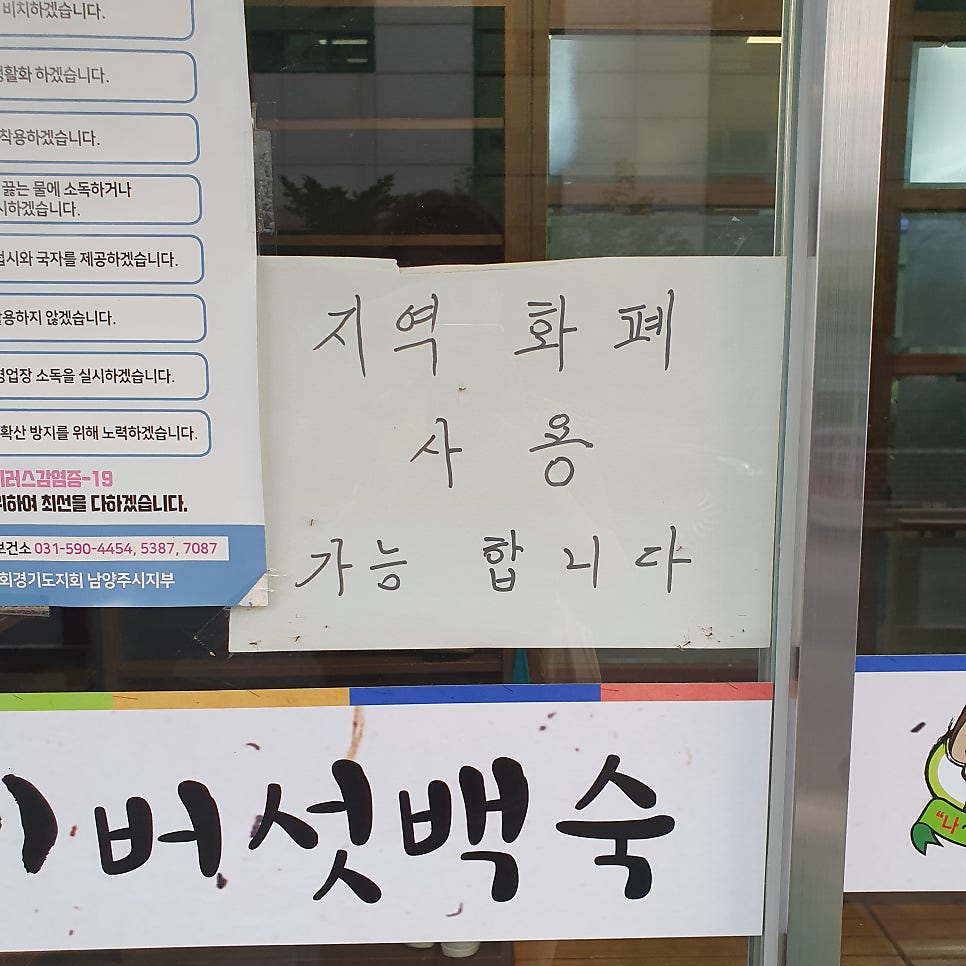 비치하겠습니다.
생활화 하겠습니다.
착용하겠습니다.
끓는 물에 소독하거나
하겠습니다.
접시와 국자를 제공하겠습니다.
하지 않겠습니다.
영업장 소독을 실시하겠습니다.
확산 방지를 위해 노력하겠습니다.
러스감염증-19
위하여 최선을 다하겠습니다.
보건소 031-590-4454, 5387, 7087
회경기도지회 남양주시지부
지역 화폐
사용
가능 합니다
버섯백숙
"나